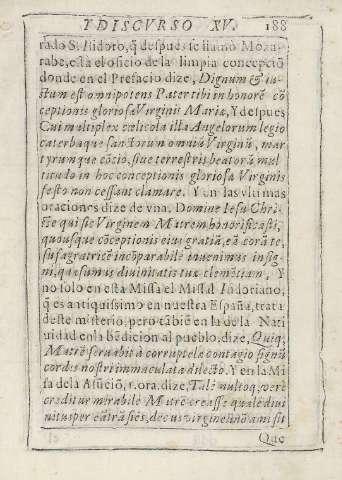 Y DISCVRSO XV. 188
rado S. Isidoro, q̃ despues se llamo Moza-
rabe, està el oficio de la limpia concepciõ
donde en el Prefacio dize, Dignum & iu-
stum est omnipotens Pater tibi in honorẽ cõ
ceptionis gloriosa Virginis Mariæ, Y despues
Cui multiplex cœlicola illa Angelorum legio
caterbaque sanctorum omniũ Virginũ, mar
tyrumque cõcio, siue terrestris beatorũ mul
titudo in hoc conceptionis gloriosa Virginis
festo non cessant clamare. Y en las vltimas
oraciones dize de vna, Domine Iesu Chri-
ste qui sic Virginem Matrem honorificasti,
quousque cõceptionis eius gratiã, eã corã te,
sufragatricẽ incõparabilẽ inuenimus insig
ni, quæsumus diuinitatis tuæ clemẽtiam, Y
no solo en esta Missa el Missal Isidoriano,
q̃ es antiquissimo en nuestra España, trata
deste misterio, pero tãbiẽ en la de la Nati
uidad en la bẽdicion al pueblo, dize, Quiq;
Matrẽ seruabit à corruptelæ contagio signũ
cordis nostri immaculata dilecto. Y en la Mi
sa de la Asũciõ, r. ora. dize, Talẽ
creditur mirabile Matrẽ creasse qualẽ diui
nitus per
Que